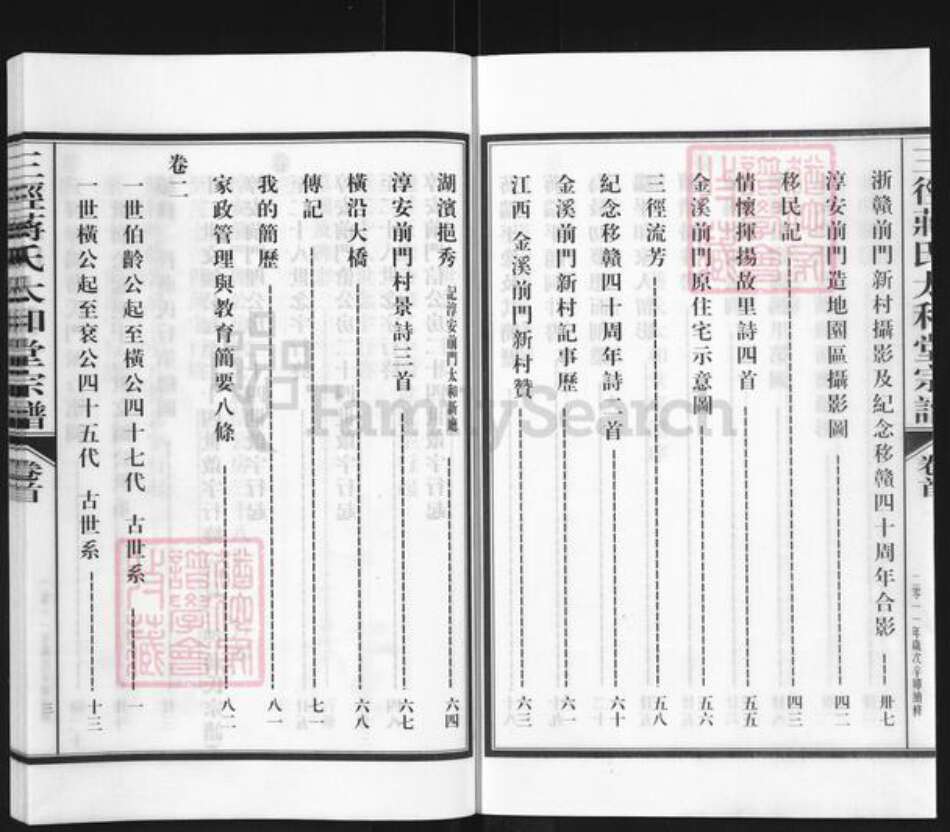 三徑蔣氏大和堂宗譜
卷首
二零一一年歲次辛卯續修
浙贛前門新村攝影及紀念移贛四十周年合影 卅七
淳安前門造地園區攝影圖 四二
移民記 四三
情懷揮揚故里詩四首 五五
金溪前門原住宅示意圖 五六
三徑流芳 五八
紀念移贛四十周年詩二首 六十
金溪前門新村記事歷 六一
江西 金溪前門新村贊 六三
湖濱挹秀 記淳安前門太和新廳 六四
淳安前門村景詩三首 六七
橫沿大橋 六八
傳記 七一
我的簡歷 八一
家政管理與教育簡要八條 八二
卷二
一世伯齡公起至橫公四十七代 古世系 一
一世橫公起至袞公四十五代 古世系 十三
三徑蔣氏太和堂宗譜
卷首
三
FamilySearch